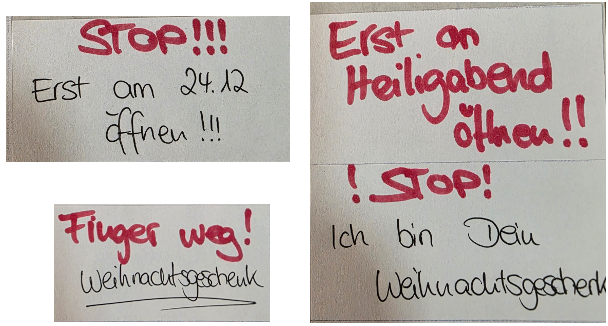 STOP!!!
Erst am 24.12
öffnen!!!
Finger weg!
Weihnachtsgeschenk
Erst an
Heiligabend
öffnen!!
! STOP!
Ich bin Dein
Weihnachtsgeschenk